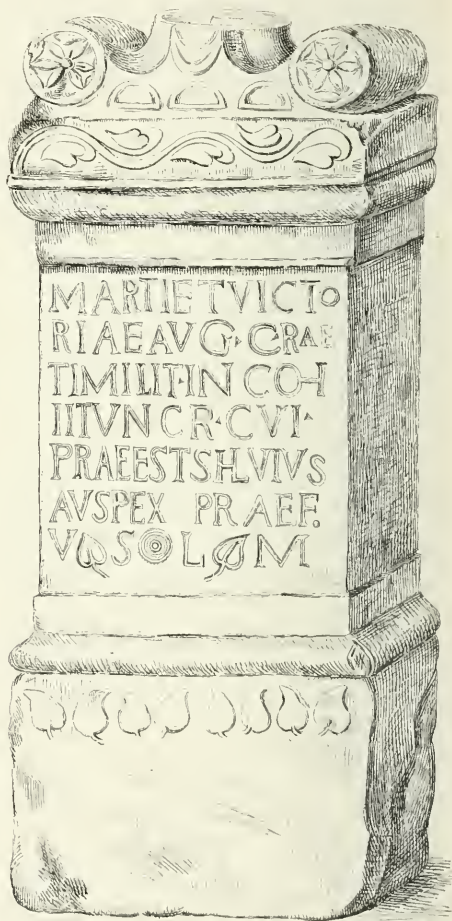 MARTIETVICTO
RIAEAVG·C·RAE
TIMILIT·IN COH
IITVNCR·CVI·
PRAEESTSILVIVS
AVSPEX PRAEF.
V S L M